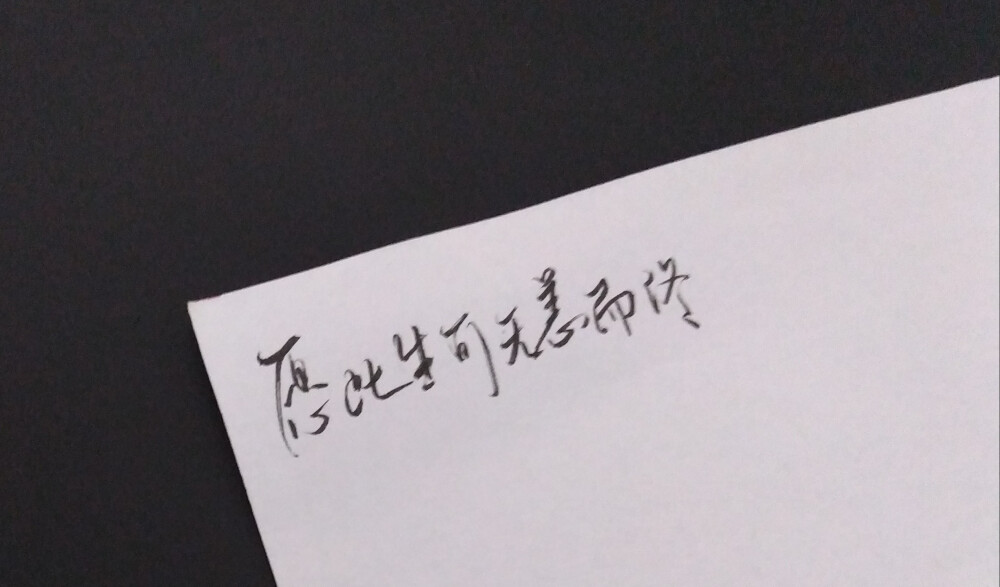 愿此生可无恙而终